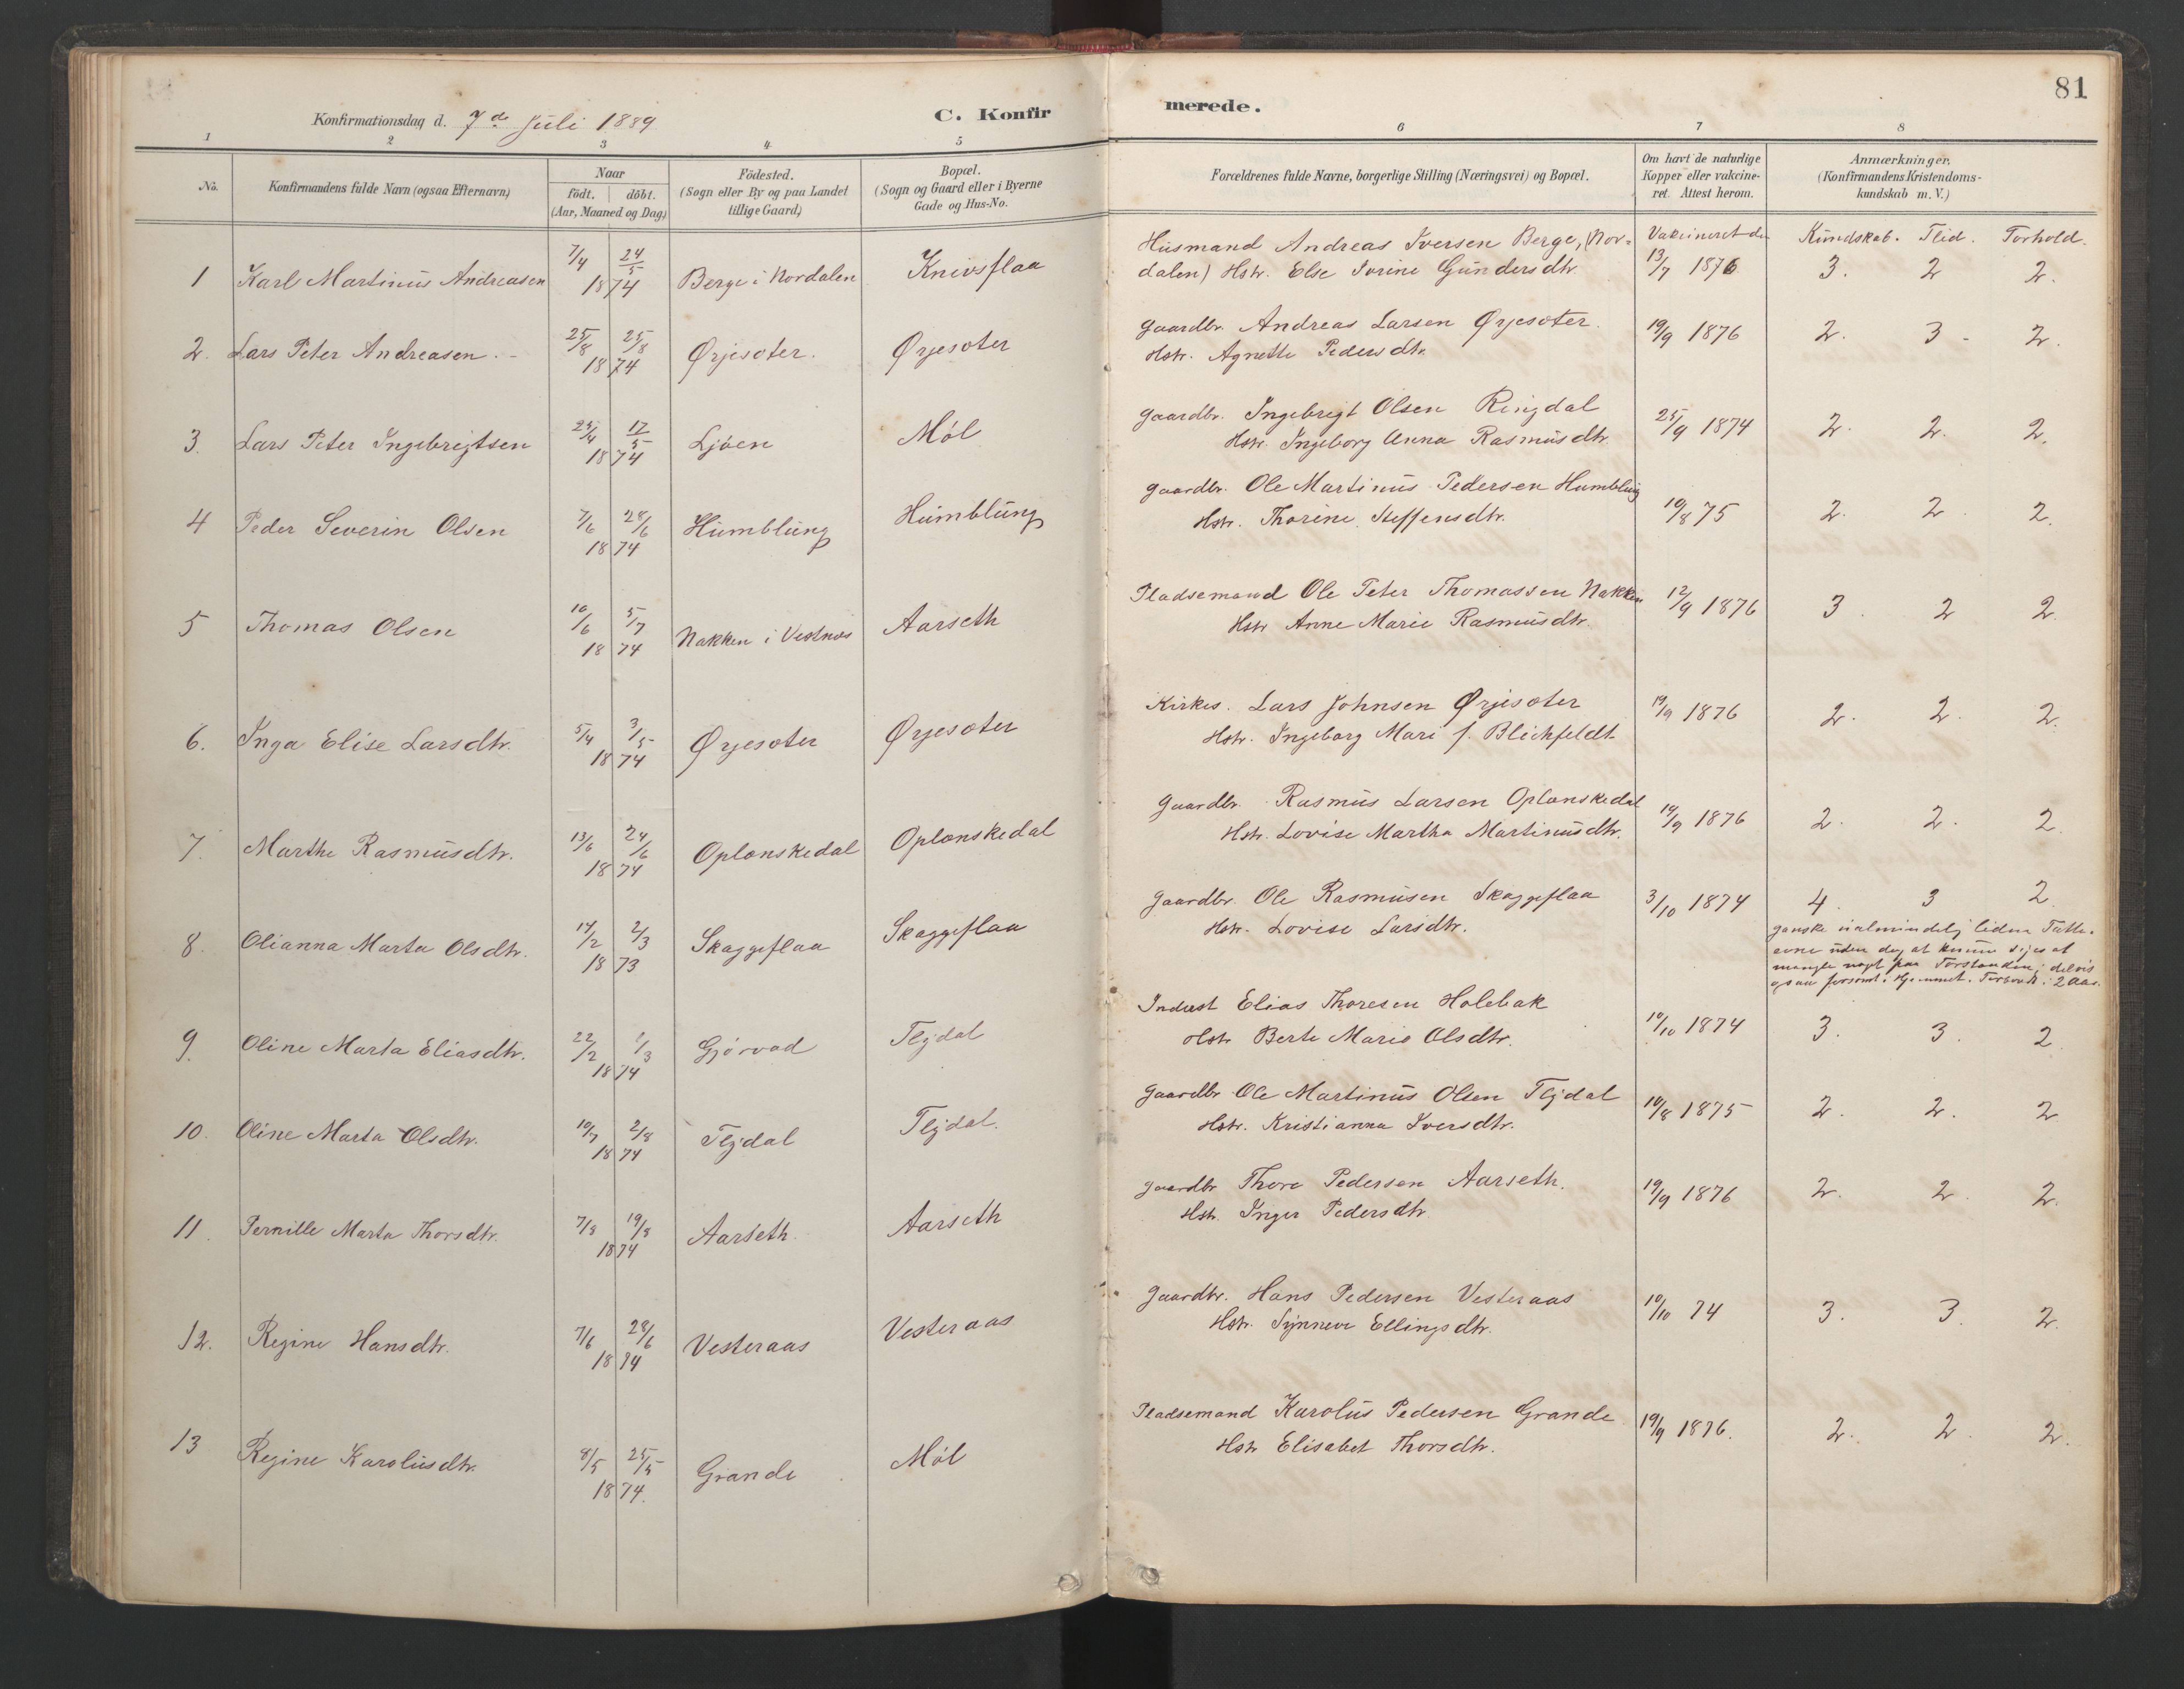 81
Konfirmationsdag d. 7de Juli 1889
C. Konfirmerede.
1 2 3 4 5 6 7 8
No.
Konfirmandens fulde Navn (ogsaa Efternavn)
Naar
födt. döbt.
(Aar, Maaned og Dag)
Födested.
(Sogn eller By og paa Landet
tillige Gaard)
Bopæl.
(Sogn og Gaard eller i Byerne
Gade og Hus-No.
Forældrenes fulde Navne, borgerlige Stilling (Næringsvei) og Bopæl.
Om havt de naturlige
Kopper eller vakcine-
ret. Attest herom.
Anmærkninger.
(Konfirmandens Kristendoms-
kundskab m.V.)
Kundskab. Flid. Forhold.
1 Karl Martinus Andreasen 7/4 24/5 1874 Berge i Nordalen Knivsflaa
Husmand Andreas Iversen Berge, (Nor-
dalen) Hstr. Else Jorine Gundersdtr. Vakcineret den
13/7 1876 3. 2 2.
2. Lars Peter Andreasen. 25/8 25/8 1874 Ørjesæter. Ørjesæter
Gaardbr. Andreas Larsen Ørjesæter.
Hstr. Agnette Pedersdtr. 19/9 1876 2. 3 2.
3. Lars Peter Ingebrigtsen 23/4 17/5 1874 Ljöen Möl
Gaardbr. Ingebrigt Olsen Ringdal
Hstr. Ingeborg Anna Rasmusdtr. 25/9 1874 2. 2. 2.
4 Peder Severin Olsen 7/6 28/6 1874 Humblung Humblung
Gaardbr. Ole Martinus Pedersen Humblung
Hstr. Thorine Steffensdtr. 10/8 75 2. 2 2.
5 Thomas Olsen 10/6 5/7 1874 Nakken i Vestnæs Aarseth
Pladsemand Ole Peter Thomassen Nakken
Hstr Anne Marie Rasmusdtr. 12/9 1876 3. 2 2.
6. Inga Elise Larsdtr. 5/4 3/5 1874 Ørjesæter Ørjesæter
Kirkes. Lars Johnsen Ørjesæter
Hstr. Ingeborg Mari f. Blichfeldt 19/9 1876 2. 2. 2.
7. Marthe Rasmusdtr. 13/6 24/6 1874 Oplænskedal Oplænskedal
Gaardbr. Rasmus Larsen Oplænskedal
Hstr. Lovise Martha Martinusdtr. 19/9 1876 2. 2. 2
8. Olianna Marta Olsdtr. 14/2 2/3 1873 Skaggeflaa Skaggeflaa
Gaardbr. Ole Rasmusen Skaggeflaa
Hstr. Lovise Larsdtr. 3/10 1874 4. 3 2
ganske ualmindelig liden Fatte-
evne uden dog at kunne siges at
mangle noget paa Forstanden; delvis
ogsaa forsömt i Hjemmet. 2 Aar.
9. Oline Marta Eliasdtr. 22/2 1/3 1874 Gjörvad Flydal
Inderst Elias Thoresen Holebak
Hstr Berte Marie Olsdtr. 10/10 1874 3. 3. 2
10. Oline Marta Olsdtr. 10/7 2/8 1874 Flydal Flydal.
Gaardbr Ole Martinus Olsen Flydal
Hstr. Kristianna Iversdtr. 10/8 1875 2. 2. 2
11. Pernille Marta Thorsdtr. 7/8 19/8 1874 Aarseth Aarseth
Gaardbr Thore Pedersen Aarseth.
Hstr. Inger Pedersdtr. 19/9 1876 2. 2. 2.
12. Regine Hansdtr. 7/6 28/6 1874 Vesteraas Vesteraas
Gaardbr. Hans Pedersen Vesteraas
Hstr. Synneve Ellingsdtr. 10/10 74 3. 3. 2.
13 Regine Karolusdtr. 8/5 25/5 1874. Grande Möl
Pladsemand Karolus Pedersen Grande
Hstr Elisabet Thorsdtr. 19/9 1876. 2. 2. 2.